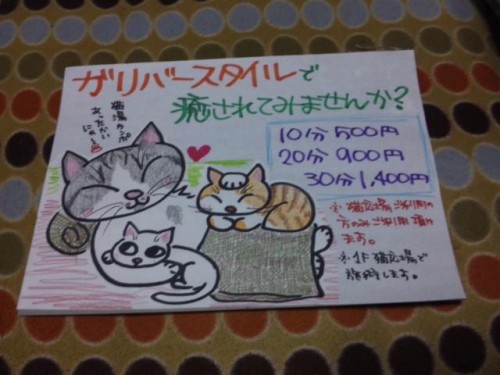 ガリバースタイルで
癒されてみませんか?
猫湯たんぽ
あったかい
にゃ〜
10分 500円
20分 900円
30分 1,400円
※ 猫広場ご利用の
方のみご利用頂け
ます。
※ 1F 猫広場で
します。